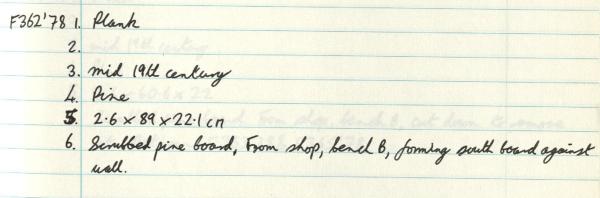 F362'78 1. Plank
2.
3. mid 19th century
4. Pine
5. 2.6 x 89 x 22.1 cm
6. Scrubbed pine board, From shop, bench B, forming south board against
wall.